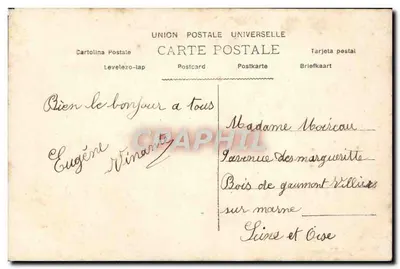 UNION POSTALE UNIVERSELLE
CARTE POSTALE
Cartolina Postale
Tarjeta postal
Levelezo-lap
Postcard
Postkarte
Briefkaart
Bien le bonjour a tous
Eugéne
Vinard
Madame Moireau
avenue des margueritte
Bois de gaumont Villiers
sur marne
Seine et Oise
CPAPHIL.COM